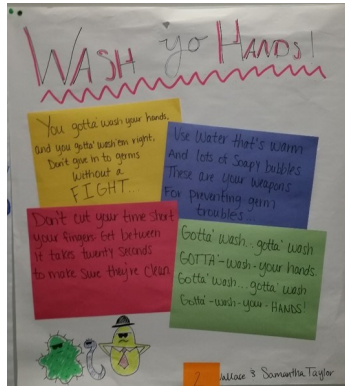 WASH yo HANDS!
You gotta' wash your hands,
and you gotta' wash'em right,
Don't give in to germs
without a
FIGHT...
Use Water that's warm
And lots of Soapy bubbles
These are your weapons
For preventing germ
troubles..
Don't cut your time short
your fingers- Get between
It takes twenty seconds
to make sure they're clean
Gotta' wash...gotta' wash
GOTTA'-wash-your hands.
Gotta' wash...gotta' wash
Gotta'-wash-your-HANDS!
& Samantha Taylor